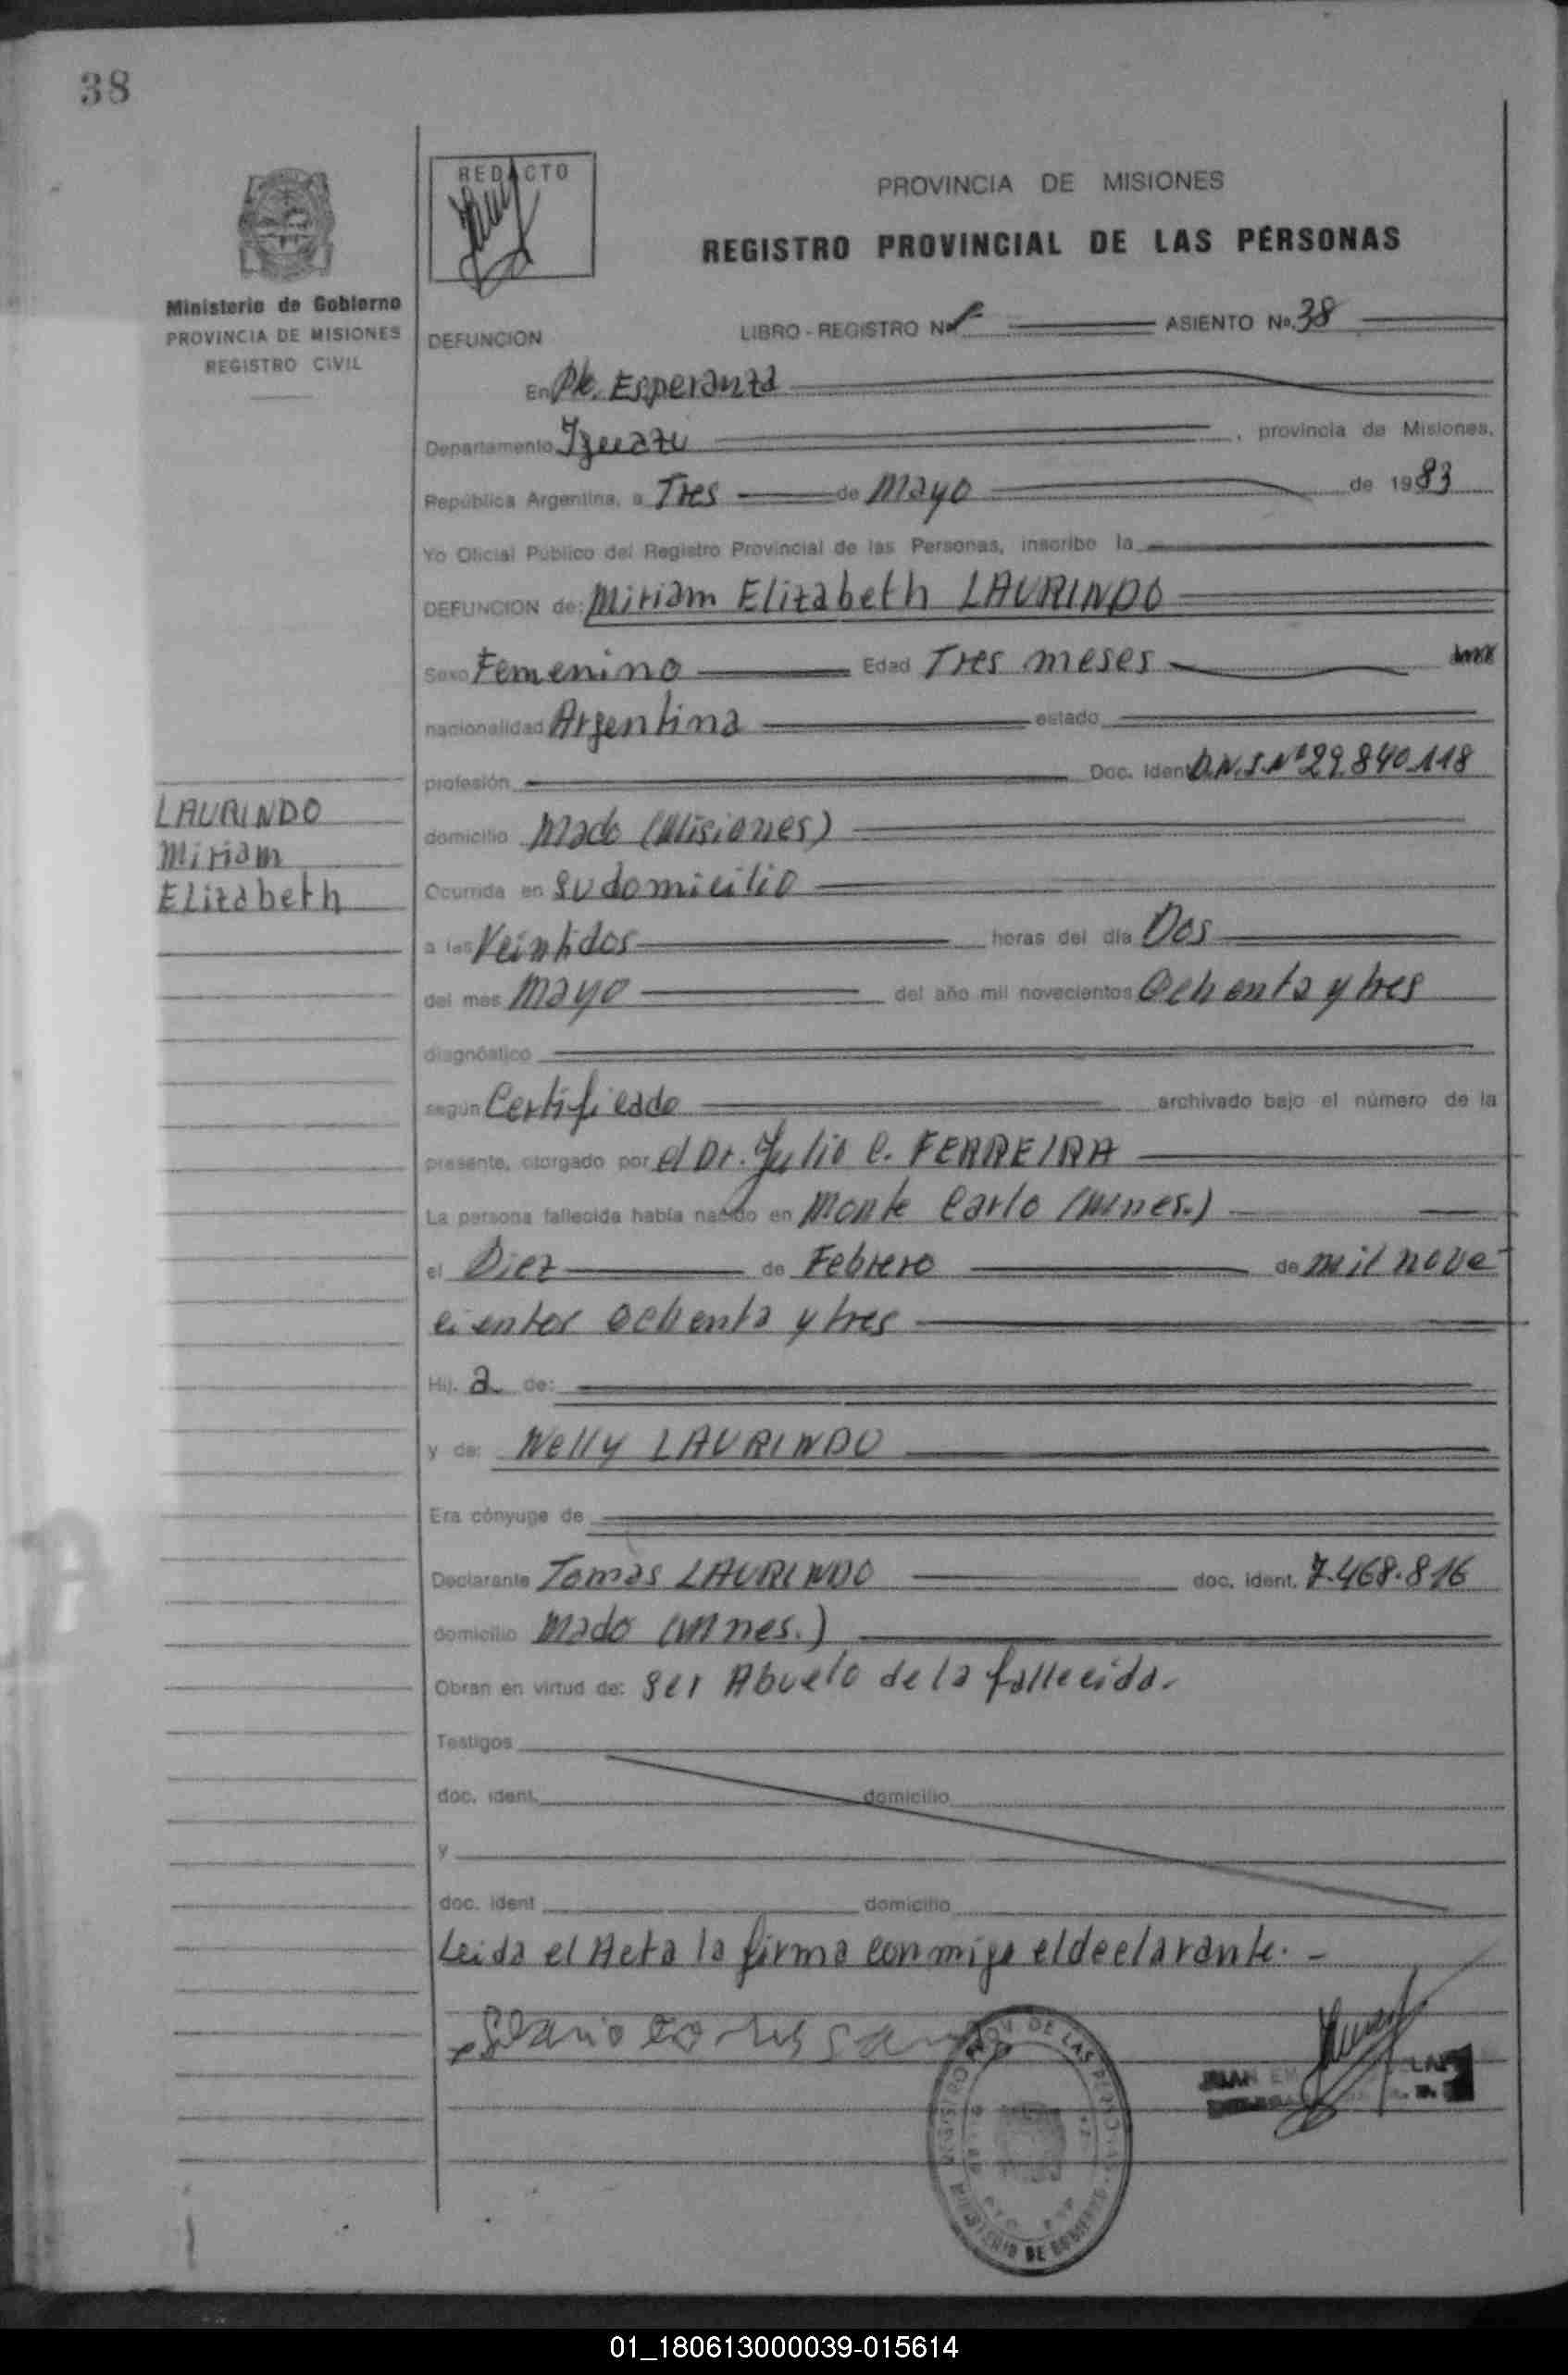 38
REDACTO
PROVINCIA DE MISIONES
REGISTRO PROVINCIAL DE LAS PERSONAS
Ministerio de Gobierno
PROVINCIA DE MISIONES
REGISTRO CIVIL
DEFUNCION LIBRO - REGISTRO No ASIENTO No. 38
En Pto. Esperanza
Departamento Iguazu, provincia de Misiones,
República Argentina, a Tres de Mayo de 1983
Yo Oficial Público del Registro Provincial de las Personas, inscribo la
DEFUNCION de: Miriam Elizabeth LAURINDO
Sexo Femenino Edad Tres meses
nacionalidad Argentina estado
profesión Doc. Ident. D.N.I. Nº 29.840.118
LAURINDO
Miriam
Elizabeth
domicilio Mado (Misiones)
Ocurrida en su domicilio
a las Veintidos horas del día Dos
del mes Mayo del año mil novecientos Ochenta y tres
diagnóstico
según Certificado archivado bajo el número de la
presente, otorgado por el Dr. Julio C. FERREIRA
La persona fallecida había nacido en Monte Carlo (Mnes.)
el Diez de Febrero de mil nove
cientos ochenta y tres
Hij. a de:
y de: Nelly LAURINDO
Era cónyuge de
Declarante Tomas LAURINDO doc. ident. 7.468.816
domicilio Mado (Mnes.)
Obran en virtud de: ser Abuelo de la fallecida.
Testigos
doc. ident. domicilio
y
doc. ident domicilio
Leida el Acta la firma conmigo el declarante. -
REGISTRO PROV. DE LAS PERSONAS
MINISTERIO DE GOBIERNO
JUAN
01_180613000039-015614